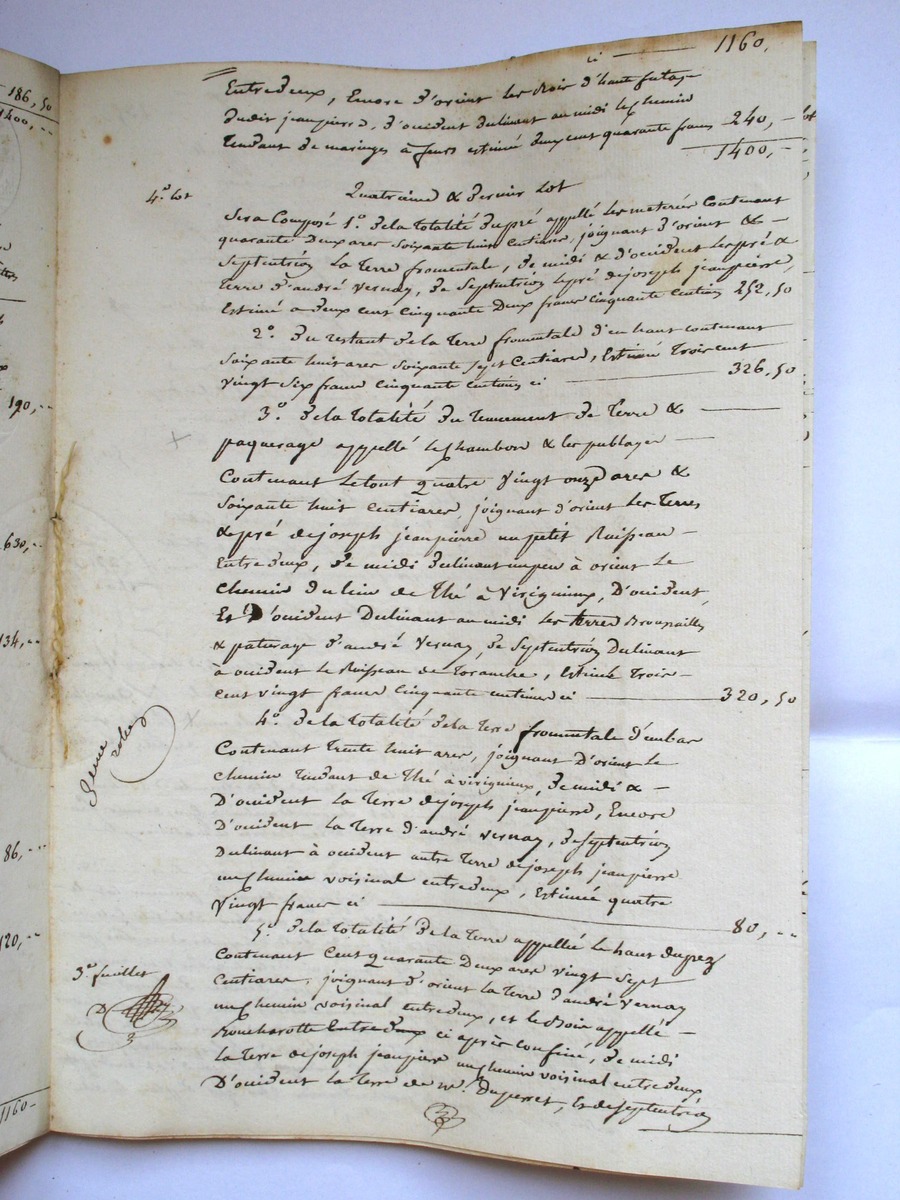 ci — 1160.
Entredeux, Encore d'orient les bois d'haute futaye
dudit jeanpierre, d'occident declinant au midi le chemin
tendant de maringes à feurs estimé deux cent quarante francs 240,-
1400,-
4.e lot
Quatrieme & dernier lot
Sera composé 1.o de la totalité du pré appellé les contenant
quarante deux ares soixante huit centiares, joignant d'orient & -
septentrion la terre fromentale, de midi & d'occident les pré &
terre d'andré vernay, de septentrion le pré de joseph jeanpierre,
Estimé a deux cent cinquante deux francs cinquante centimes 252,50
2.o du restant de la terre fromentale d'en haut contenant
soixante huit ares soixante sept centiares, Estimée trois cent
vingt six francs cinquante centimes ci — 326,50
3.o de la totalité du tenement de terre & —
paquerage appellé le chambon & les publayes —
contenant le tout quatre vingt onze ares &
soixante huit centiares, joignant d'orient les terres
& pré de joseph jeanpierre un petit Ruisseau —
Entredeux, de midi declinant un peu à orient le
chemin du lieu de thé à virignieux, D'occident,
Et D'occident Declinant au midi les terres Broussailles
& paterage d'andré vernay, de septentrion Declinant
à occident le Ruisseau de toranche, Estimée trois
cent vingt francs cinquante centimes ci — 320,50
4.o de la totalité de la terre fromentale d'embas
contenant trente huit ares, joignant D'orient le
chemin tendant de thé à virignieux, de midi & —
D'occident la terre de joseph jeanpierre, Encore
D'occident la terre d'andré vernay, de septentrion
Declinant à occident autre terre de joseph jeanpierre
un chemin voisinal entredeux, Estimée quatre
vingt francs ci — 80,--
5.o de la totalité de la terre appellée le haut du prez
contenant cent quarante deux ares vingt sept
centiares, joignant d'orient la terre d'andré vernay
un chemin voisinal entredeux, et le Bois appellé —
Roucharotte Entredeux ci après confiné, de midi
la terre de joseph jeanpierre un chemin voisinal entredeux
D'occident la terre de m.r Duperret, Et de septentrion
3.e feuillet
186,50
1400,--
190,--
630,--
134,--
86,--
120,--
1160-